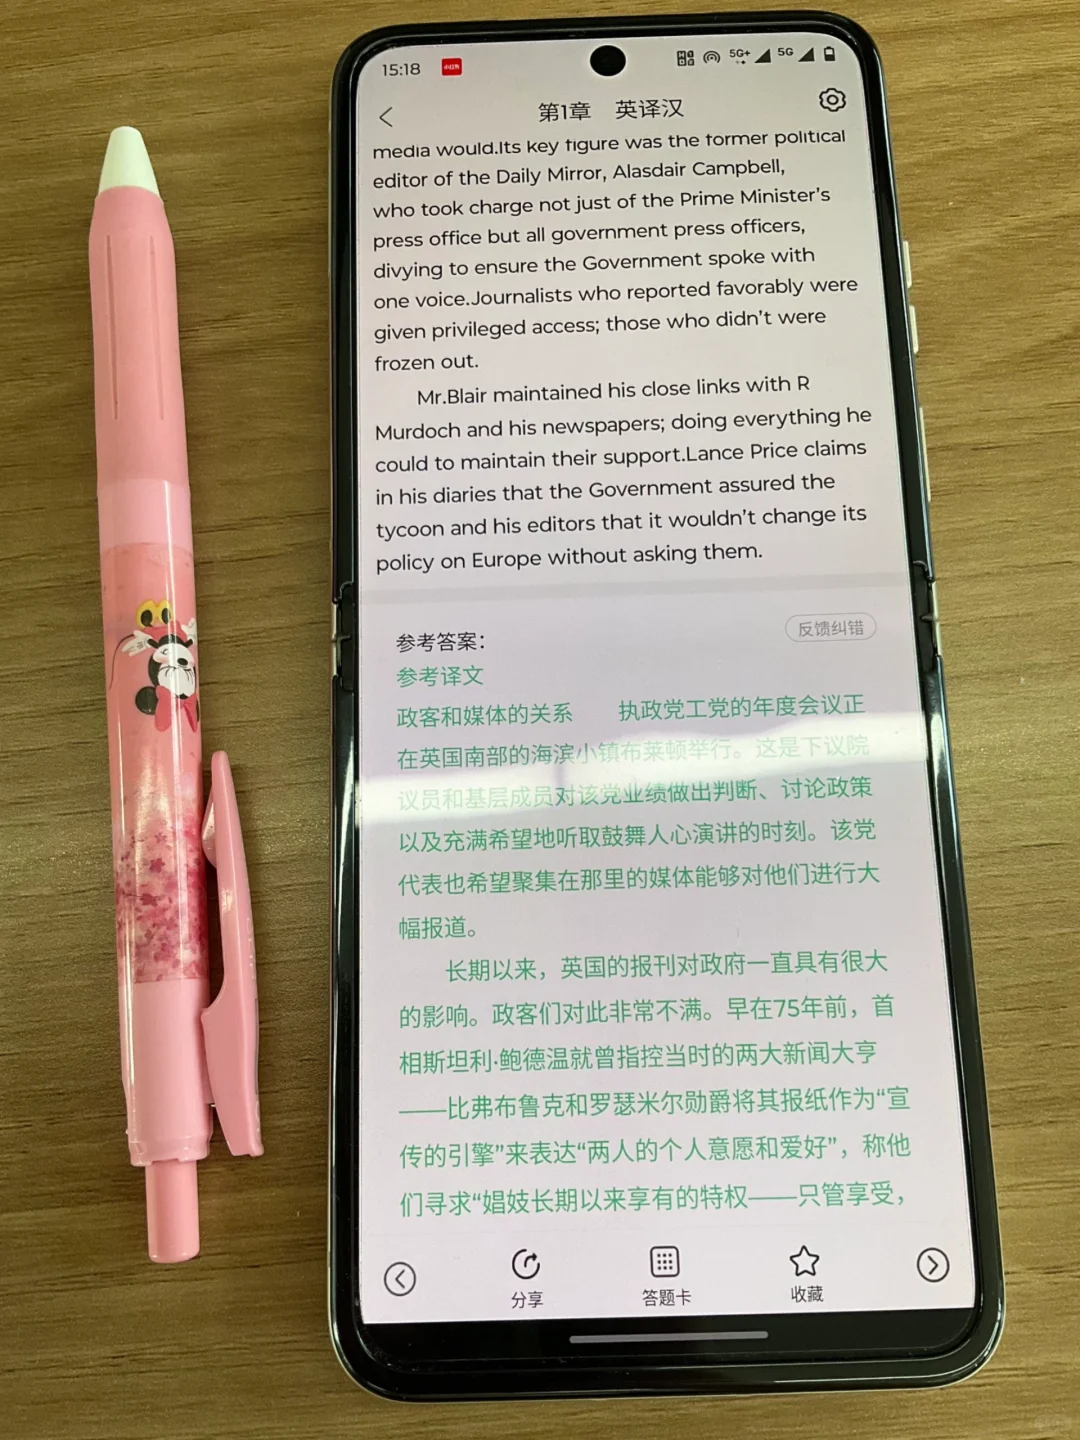 15:18
小红书
5G+
5G
第1章 英译汉
media would.Its key figure was the former political
editor of the Daily Mirror, Alasdair Campbell,
who took charge not just of the Prime Minister's
press office but all government press officers,
divying to ensure the Government spoke with
one voice.Journalists who reported favorably were
given privileged access; those who didn't were
frozen out.
Mr.Blair maintained his close links with R
Murdoch and his newspapers; doing everything he
could to maintain their support.Lance Price claims
in his diaries that the Government assured the
tycoon and his editors that it wouldn't change its
policy on Europe without asking them.
参考答案:
反馈纠错
参考译文
政客和媒体的关系 执政党工党的年度会议正
在英国南部的海滨小镇布莱顿举行。这是下议院
议员和基层成员对该党业绩做出判断、讨论政策
以及充满希望地听取鼓舞人心演讲的时刻。该党
代表也希望聚集在那里的媒体能够对他们进行大
幅报道。
长期以来，英国的报刊对政府一直具有很大
的影响。政客们对此非常不满。早在75年前，首
相斯坦利·鲍德温就曾指控当时的两大新闻大亨
——比弗布鲁克和罗瑟米尔勋爵将其报纸作为“宣
传的引擎”来表达“两人的个人意愿和爱好”，称他
们寻求“娼妓长期以来享有的特权——只管享受，
分享
答题卡
收藏